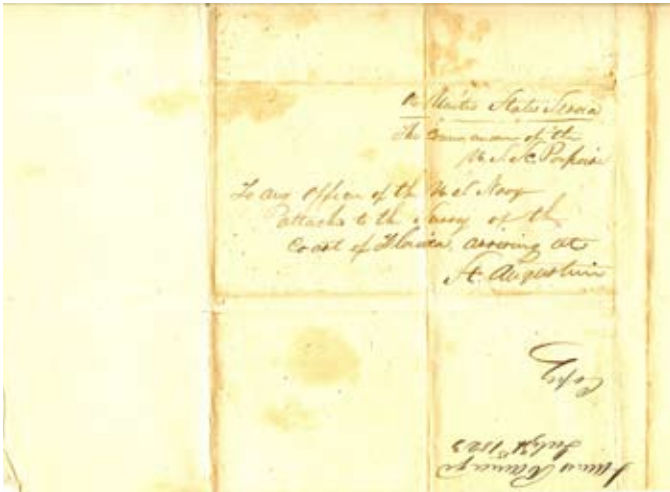 On United States Service
The Commander of the
U. S. Sc. Porpoise
To any Officer of the U. S. Navy
attached to the Survey of the
Coast of Florida, arriving at
St. Augustine
Copy
James Ramage
July 1823